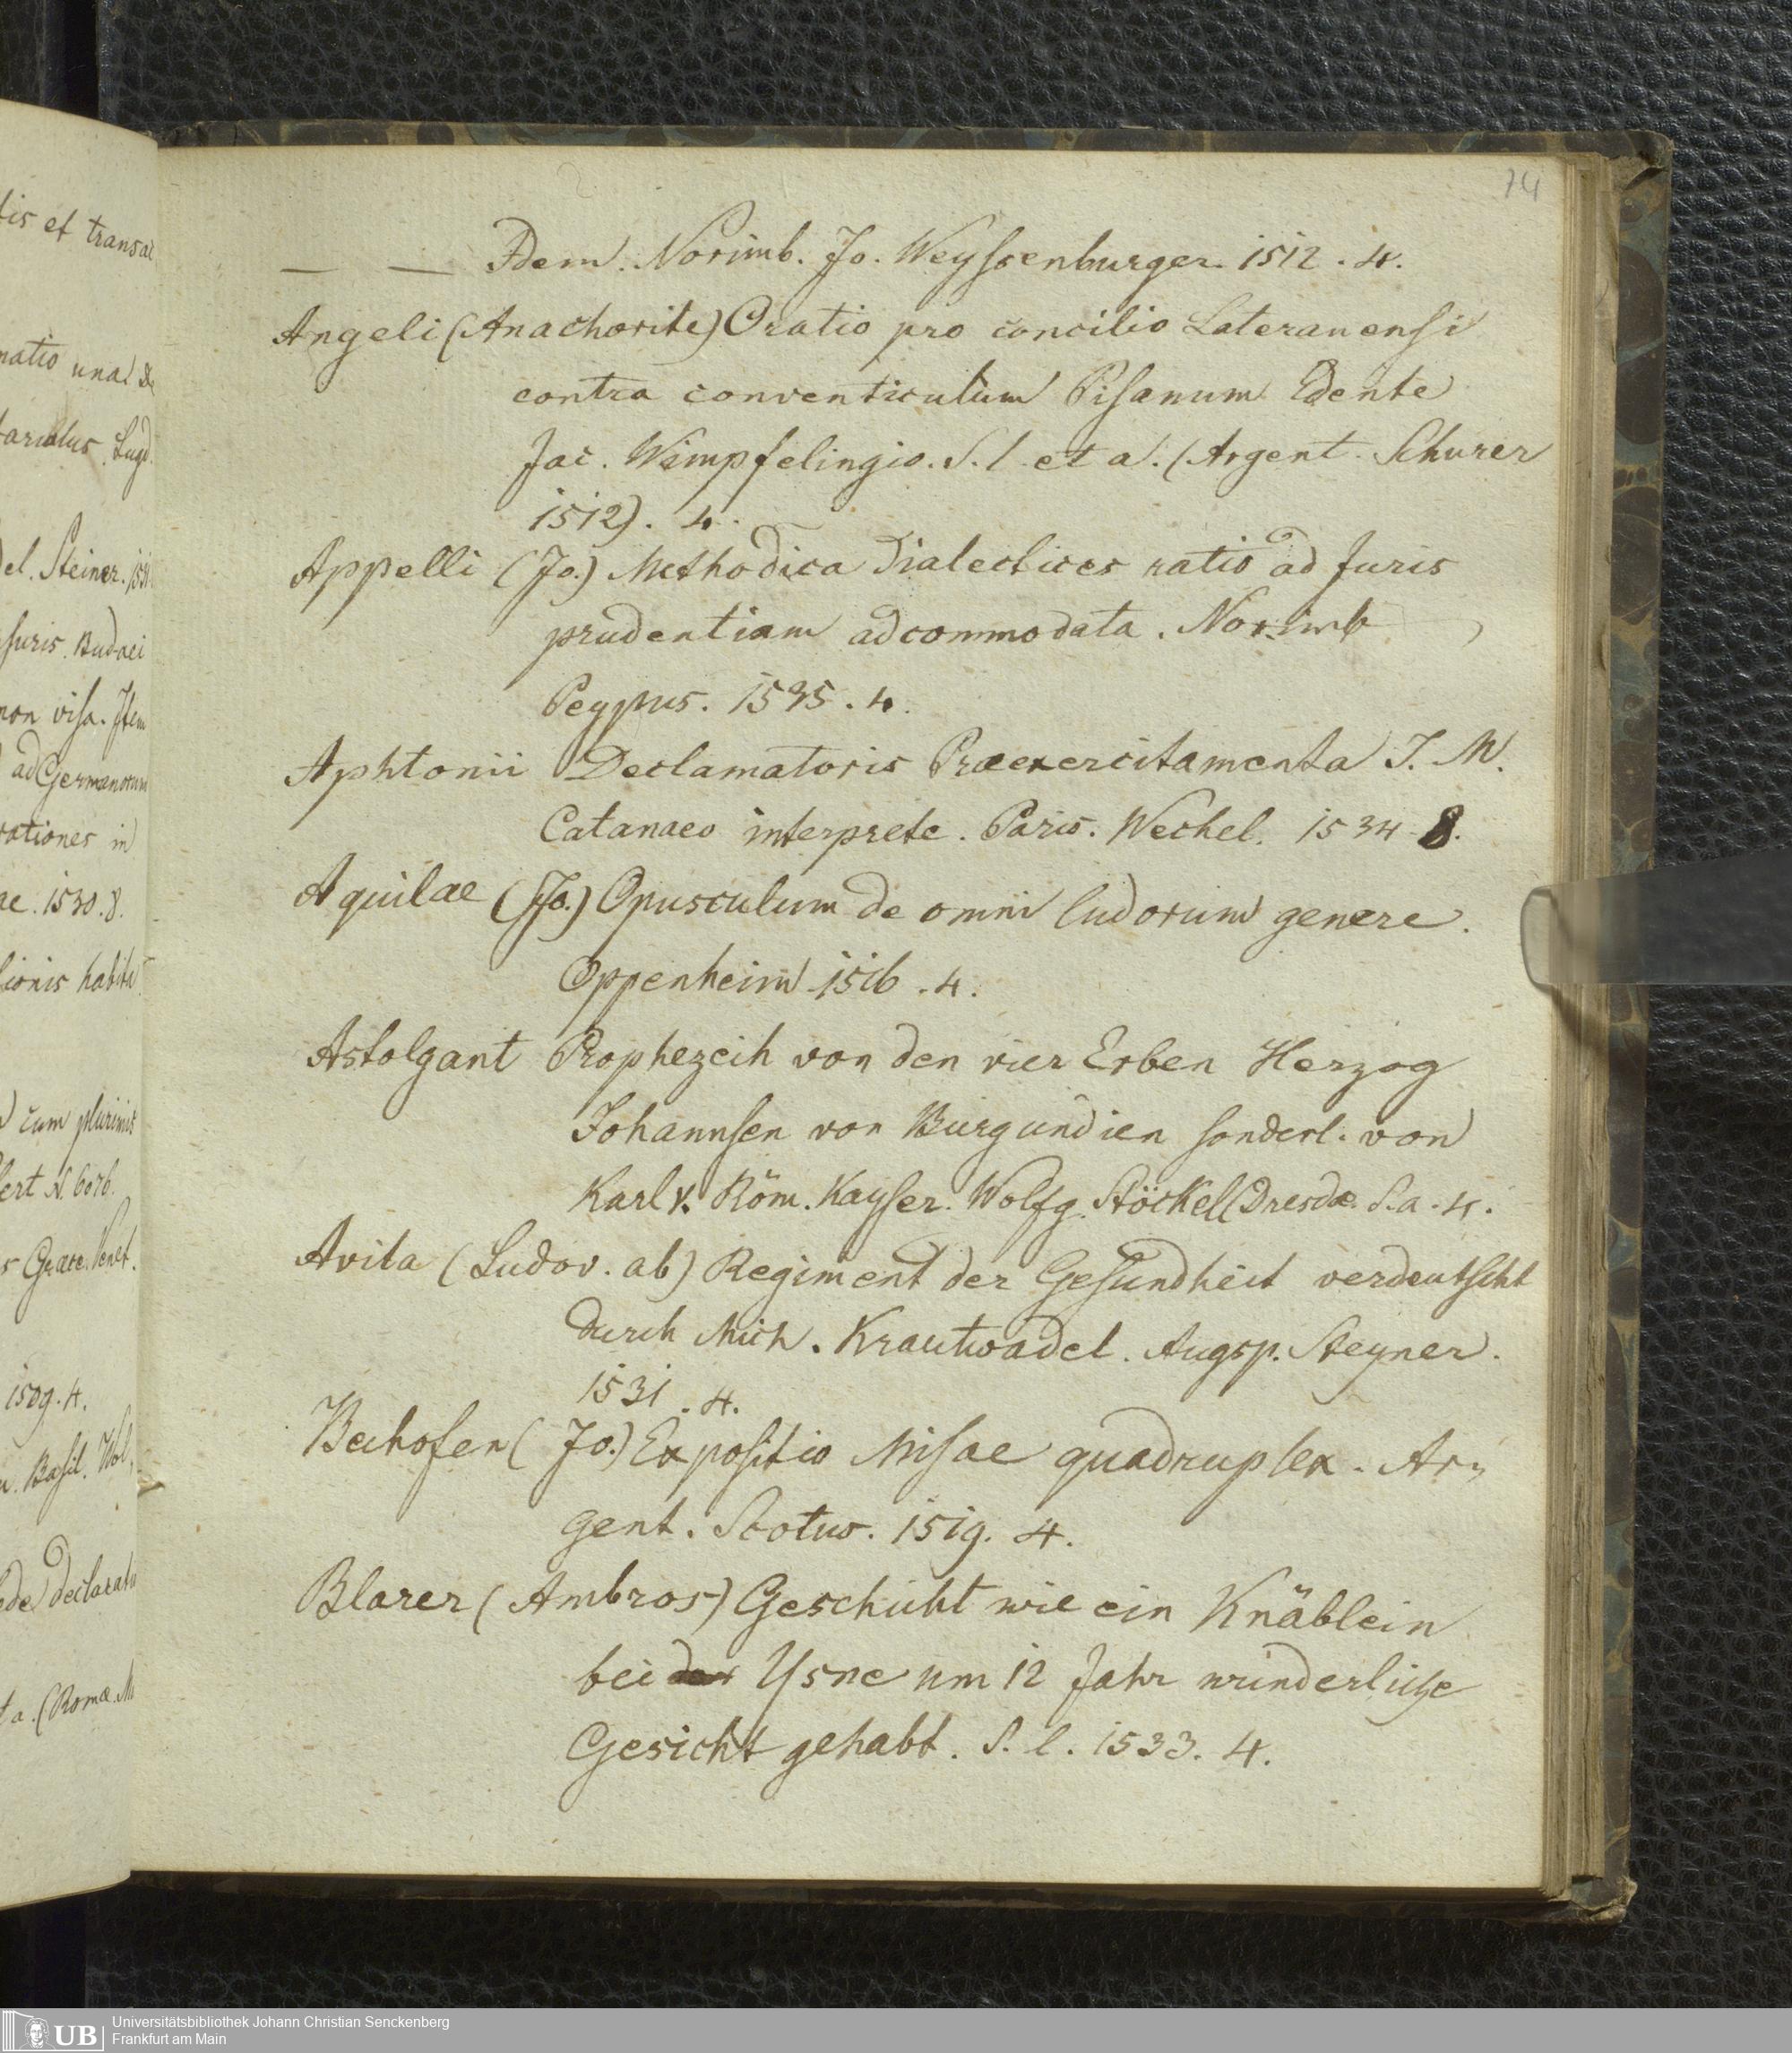 74
— — Idem. Norimb. Jo. Weyssenburger. 1512. 4.
Angeli (Anachorite) Oratio pro concilio Lateranensi
contra conventiculum Pisanum Edente
Jac. Wimpfelingio. S. l. et a. (Argent. Schurer
1512). 4.
Appelli (Jo.) Methodica Dialectices ratio ad Juris
prudentiam adcommodata. Norimb
Peypus. 1535. 4.
Aphtonii Declamatoris Praeexercitamenta J. M.
Catanaeo interprete. Paris. Wechel. 1534 8.
Aquilae (Jo.) Opusculum de omni ludorum genere.
Oppenheim 1516. 4.
Astolgant Prophezeih von den vier Erben Herzog
Johannsen von Burgundien sonderl. von
Karl V. Röm. Kayser. Wolfg. Stöckel (Dresdae. S. a. 4.
Avila (Ludov. ab) Regiment der Gesundheit verdeutscht
durch Mich. Krautwadel. Augsp. Steyner.
1531. 4.
Bechofen (Jo.) Expositio Misae quadruplex. Ar-
gent. Scotus. 1519. 4.
Blarer (Ambros) Geschicht wie ein Knäblein
bei Ysne um 12 Jahr wunderliche
Gesicht gehabt. S. l. 1533. 4.
tis et transac
natio una
Lugd.
el. Steiner.
Juris. Budaei
non visa. Item
ad Germanorum
rationes in
ae. 1530. 8.
tionis habita
cum plurimis
ert N. 6076.
s Graec. Venet.
1509. 4.
Basil. Wol,
declarata
ta. (Romae. M
UB
Universitätsbibliothek Johann Christian Senckenberg
Frankfurt am Main